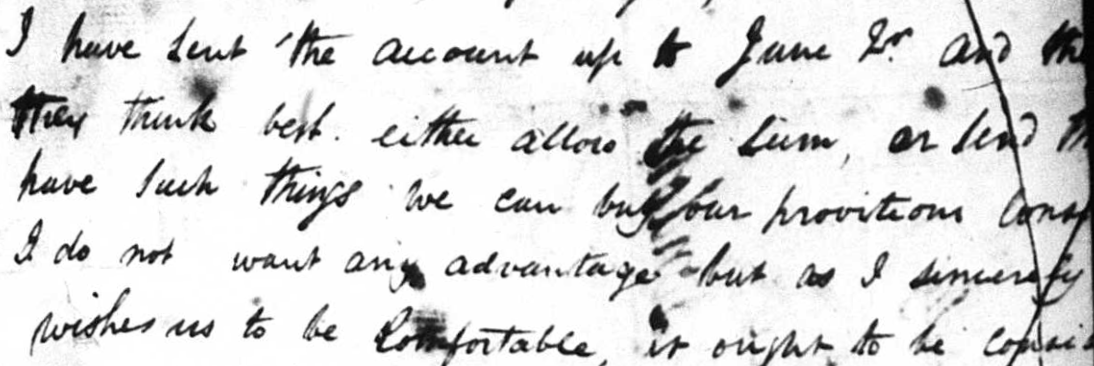 I have sent the account up to June 2d. and the
they think best. either allow the sum, or send th
have such things we can buy our provitions cons
I do not want any advantage but as I sincerely
wishes us to be Comfortable, it ought to be consid